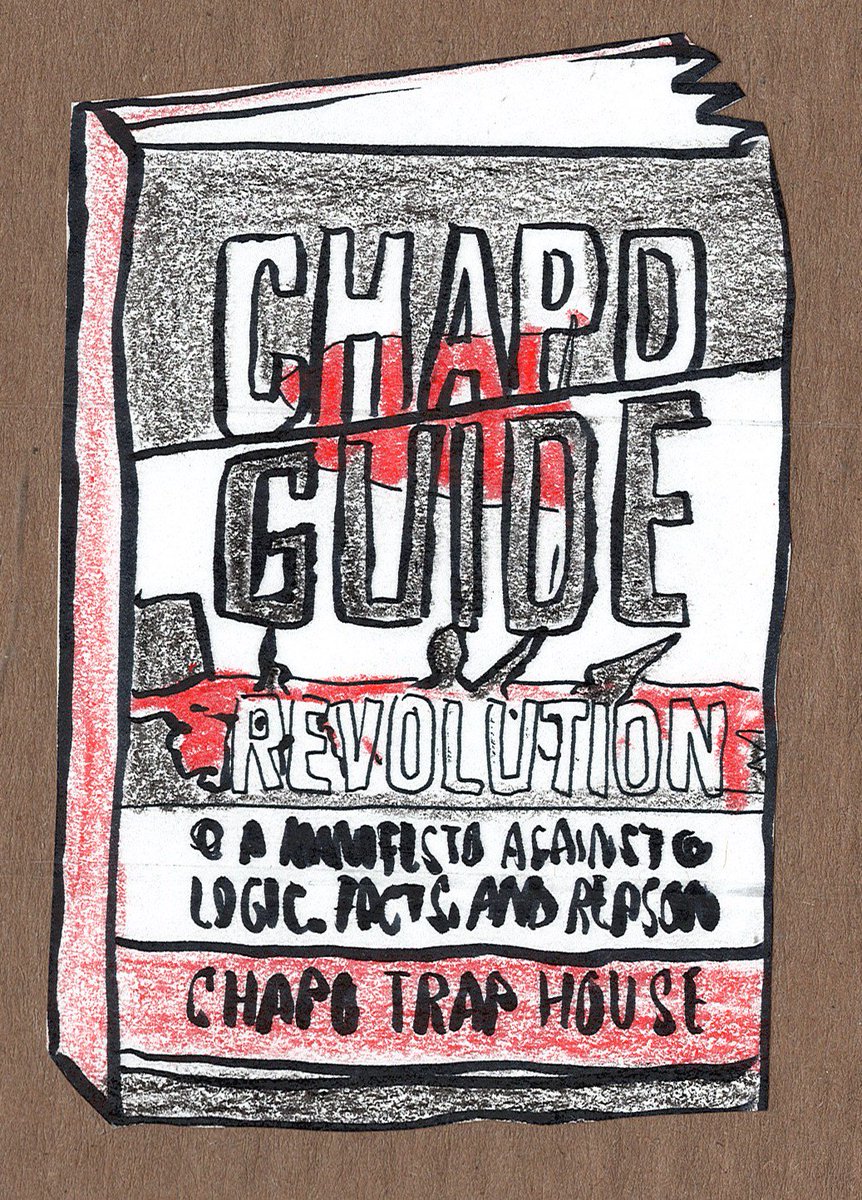 CHAPO
GUIDE
REVOLUTION
A MANIFESTO AGAINST
LOGIC, FACTS, AND REASON
CHAPO TRAP HOUSE